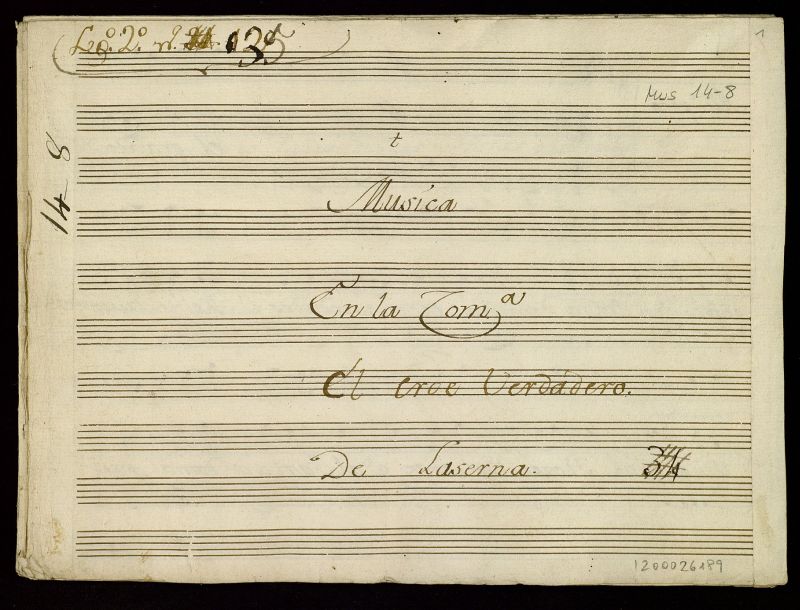 Leg.º 2.º n.º 135
1
Mus 14-8
14-8
t
Musica
En la Com.ª
El Eroe Verdadero.
De Laserna.
1200026189